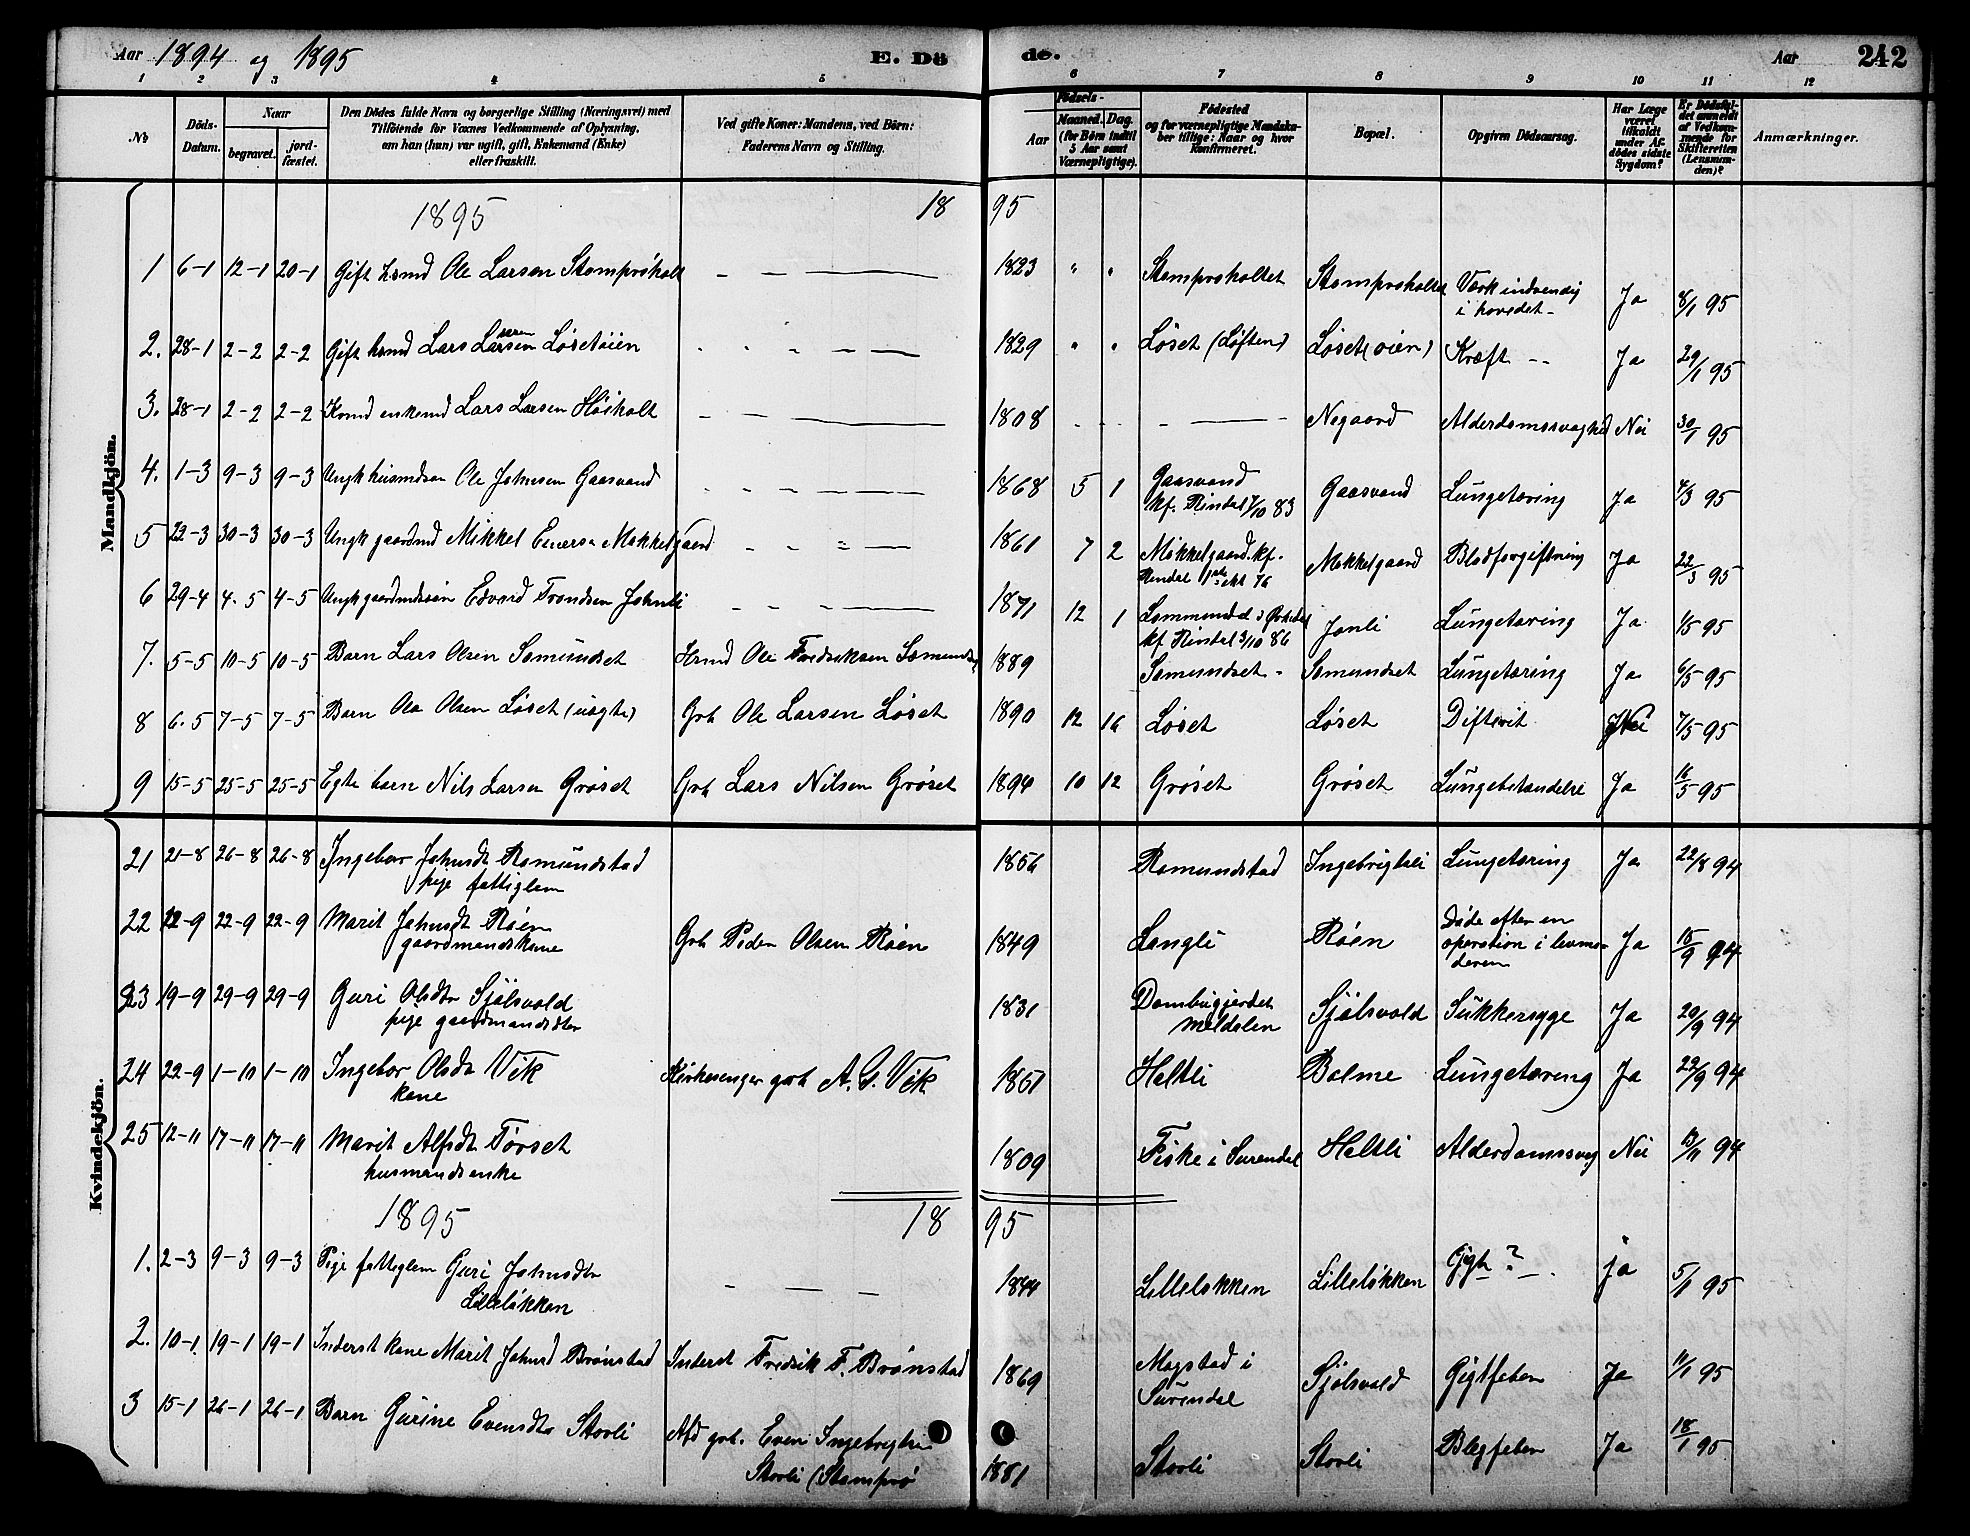 Aar 1894 og 1895 E. Dö de. Aar 242
1 2 3 4 5 6 7 8 9 10 11 12
No Döds-Datum. Naar begravet. jord-fæstet. Den Dödes fulde Navn og borgerlige Stilling (Næringsvei) med Tilföiende for Voxnes Vedkommende af Oplysning, om han (hun) var ugift, gift, Enkemand (Enke) eller fraskilt. Ved gifte Koner: Mandens, ved Börn: Faderens Navn og Stilling. Födsels- Aar Maaned. Dag. (for Börn indtil 5 Aar samt Værnepligtige). Födested og for værnepligtige Mandska-ber tillige: Naar og hvor konfirmeret. Bopæl. Opgiven Dödsaarsag. Har Læge været tilkaldt under Af-dödes sidste Sygdom? Er Dödsfal-det anmeldt af Vedkom-mende for Skifteretten (Lensman-den)? Anmærkninger.
Mandkjön.
1895 18 95
1 6-1 12-1 20-1 Gift hsmd Ole Larsen Stomprøholt — — — 1823 " " Stomproholtet Stomproholtet Værk indvendig i hovedet - Ja 8/1 95
2. 28-1 2-2 2-2 Gift hsmd Lars Larsen Løsetøien 1829 " " Løset (Løften) Løset(øien) Kræft -- Ja 29/1 95
3. 28-1 2-2 2-2 Hsmd enkemd Lars Larsen Høiholt — — — 1808 Negaard Alderdomssvaghed Nei 30/1 95
4. 1-3 9-3 9-3 Ungk husmdsøn Ole Johnsen Gaasvand 1868 5 1 Gaasvand kf. Rindal 7/10 83 Gaasvand Lungetæring Ja 4/3 95
5 22-3 30-3 30-3 Ungk gaardmd Mikkel Mokkelgaard 1861 7 2 Mokkelgaard. kf. Rindal 1ste okt 76 Mokkelgaard Blodforgiftning Ja 22/3 95
6 29-4 4-5 4-5 Ungk gaardmdssøn Edvard Trondsen Johnli 1871 12 1 i Orkedal kf Rindal 3/10 86 Jonli Lungetæring Ja 1/5 95
7. 5-5 10-5 10-5 Barn Lars Olsen Somundset Hsmd Ole Fredriksen Somundset 1889 Somundset - Somundset Lungetæring Ja 6/5 95
8 6-5 7-5 7-5 Barn Ola Olsen Løset (uægte) Grb Ole Larsen Løset 1890 12 16 Løset Løset Difterit Nei 7/5 95
9 15-5 25-5 25-5 Egte barn Nils Larsen Grøset Grb Lars Nilsen Grøset 1894 10 12 Grøset Grøset Lungebetændelse Ja 16/5 95
Kvindekjön.
21 21-8 26-8 26-8 Ingebor Johnsdt Romundstad pige fattiglem 1856 Romundstad Ingebrigtsli Lungetæring Ja 22/8 94
22 12-9 22-9 22-9 Marit Johnsdt Røen gaardmandskone Grb Peder Olsen Røen 1849 Langli Røen Døde efter en operation i livmo-deren Ja 15/9 94
23 19-9 29-9 29-9 Guri Olsdtr Sjølsvold pige gaardmandsdtr 1831 Dombugjerdet Meldalen Sjølsvold Sukkersyge Ja 20/9 94
24 22-9 1-10 1-10 Ingebor Olsdt Vik kone Kirkesanger grb A. G. Vik 1851 Heltli Bolme Lungetæring Ja 22/9 94
25 12-11 17-11 17-11 Marit Alfsdt Tørset husmandsenke 1809 Fiske i Surendal Heltli Alderdomssvag Nei 13/11 94
1895 18 95
1. 2-3 9-3 9-3 Pige fattiglem Guri Johnsdtr Lilleløkken — — — 1844 Lilleløkken Lilleløkken Gigt ? — ja 5/1 95
2. 10-1 19-1 19-1 Inderst kone Marit Johnsd Brønstad Inderst Fredrik F. Brønstad 1869 Mogstad i Surendal Sjølsvold Gigtfeber Ja 11/1 95
3 15-1 26-1 26-1 Barn Gurine Evensdtr Storli Afd grb. Even Ingebrigtsen Storli (Stomprø 1881 Storli Storli Blegfeber Ja 18/1 95